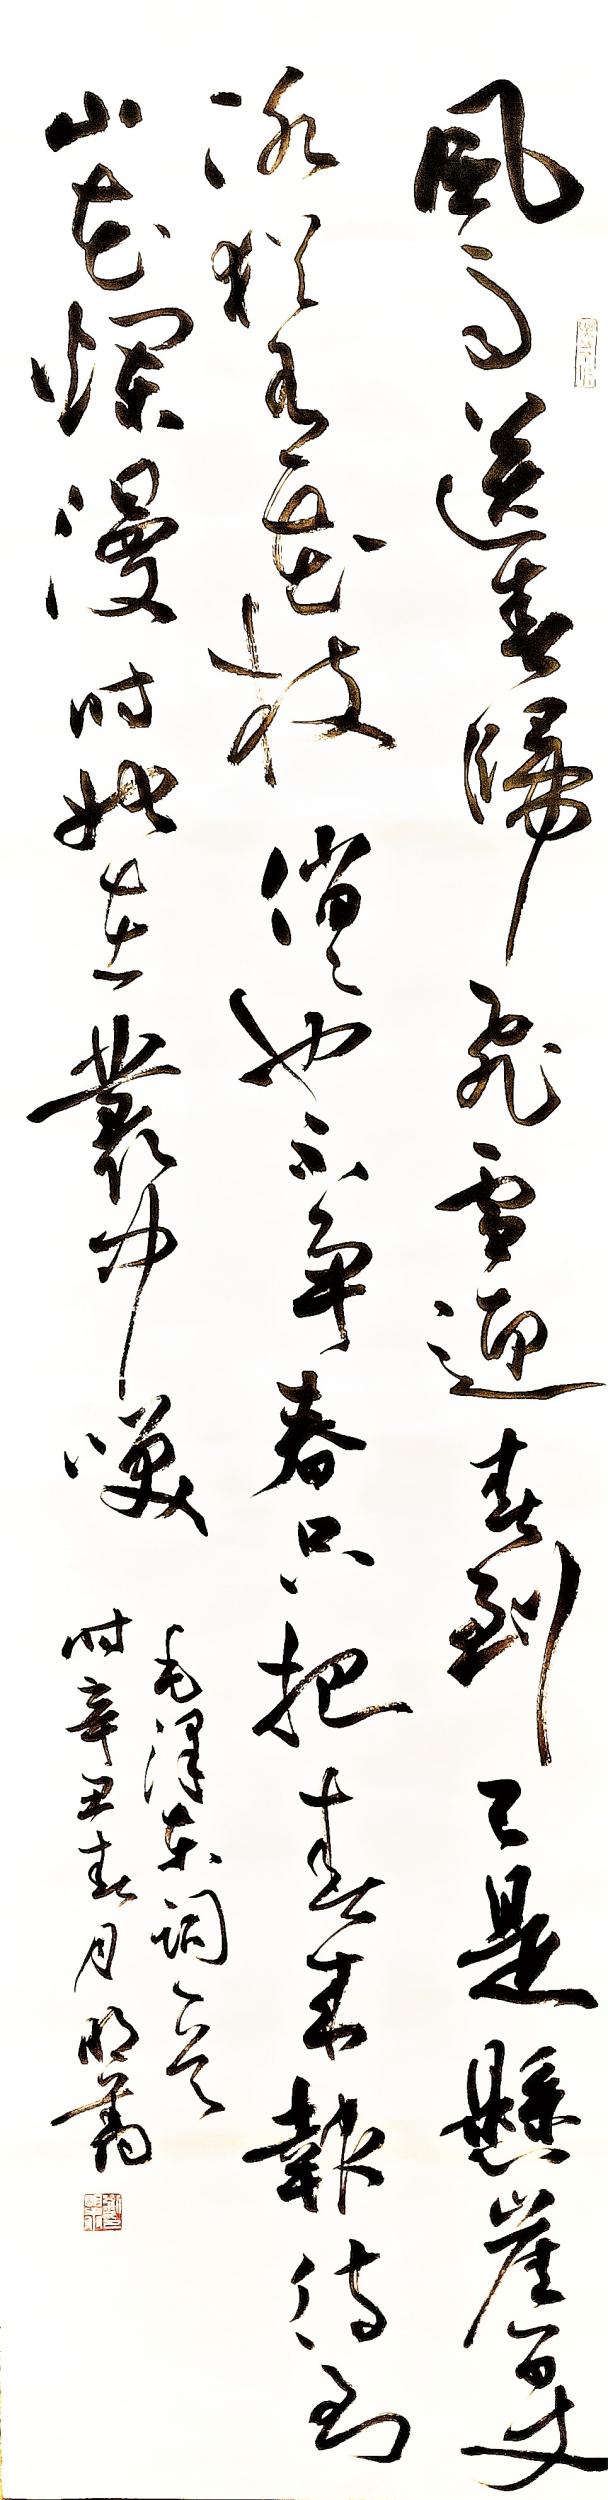 風雨送春歸飛雪迎春到已是懸崖百丈
冰猶有花枝俏也不爭春只把春來報待到
山花爛漫时她在叢中咲
毛澤東詞一首
时辛丑春月明